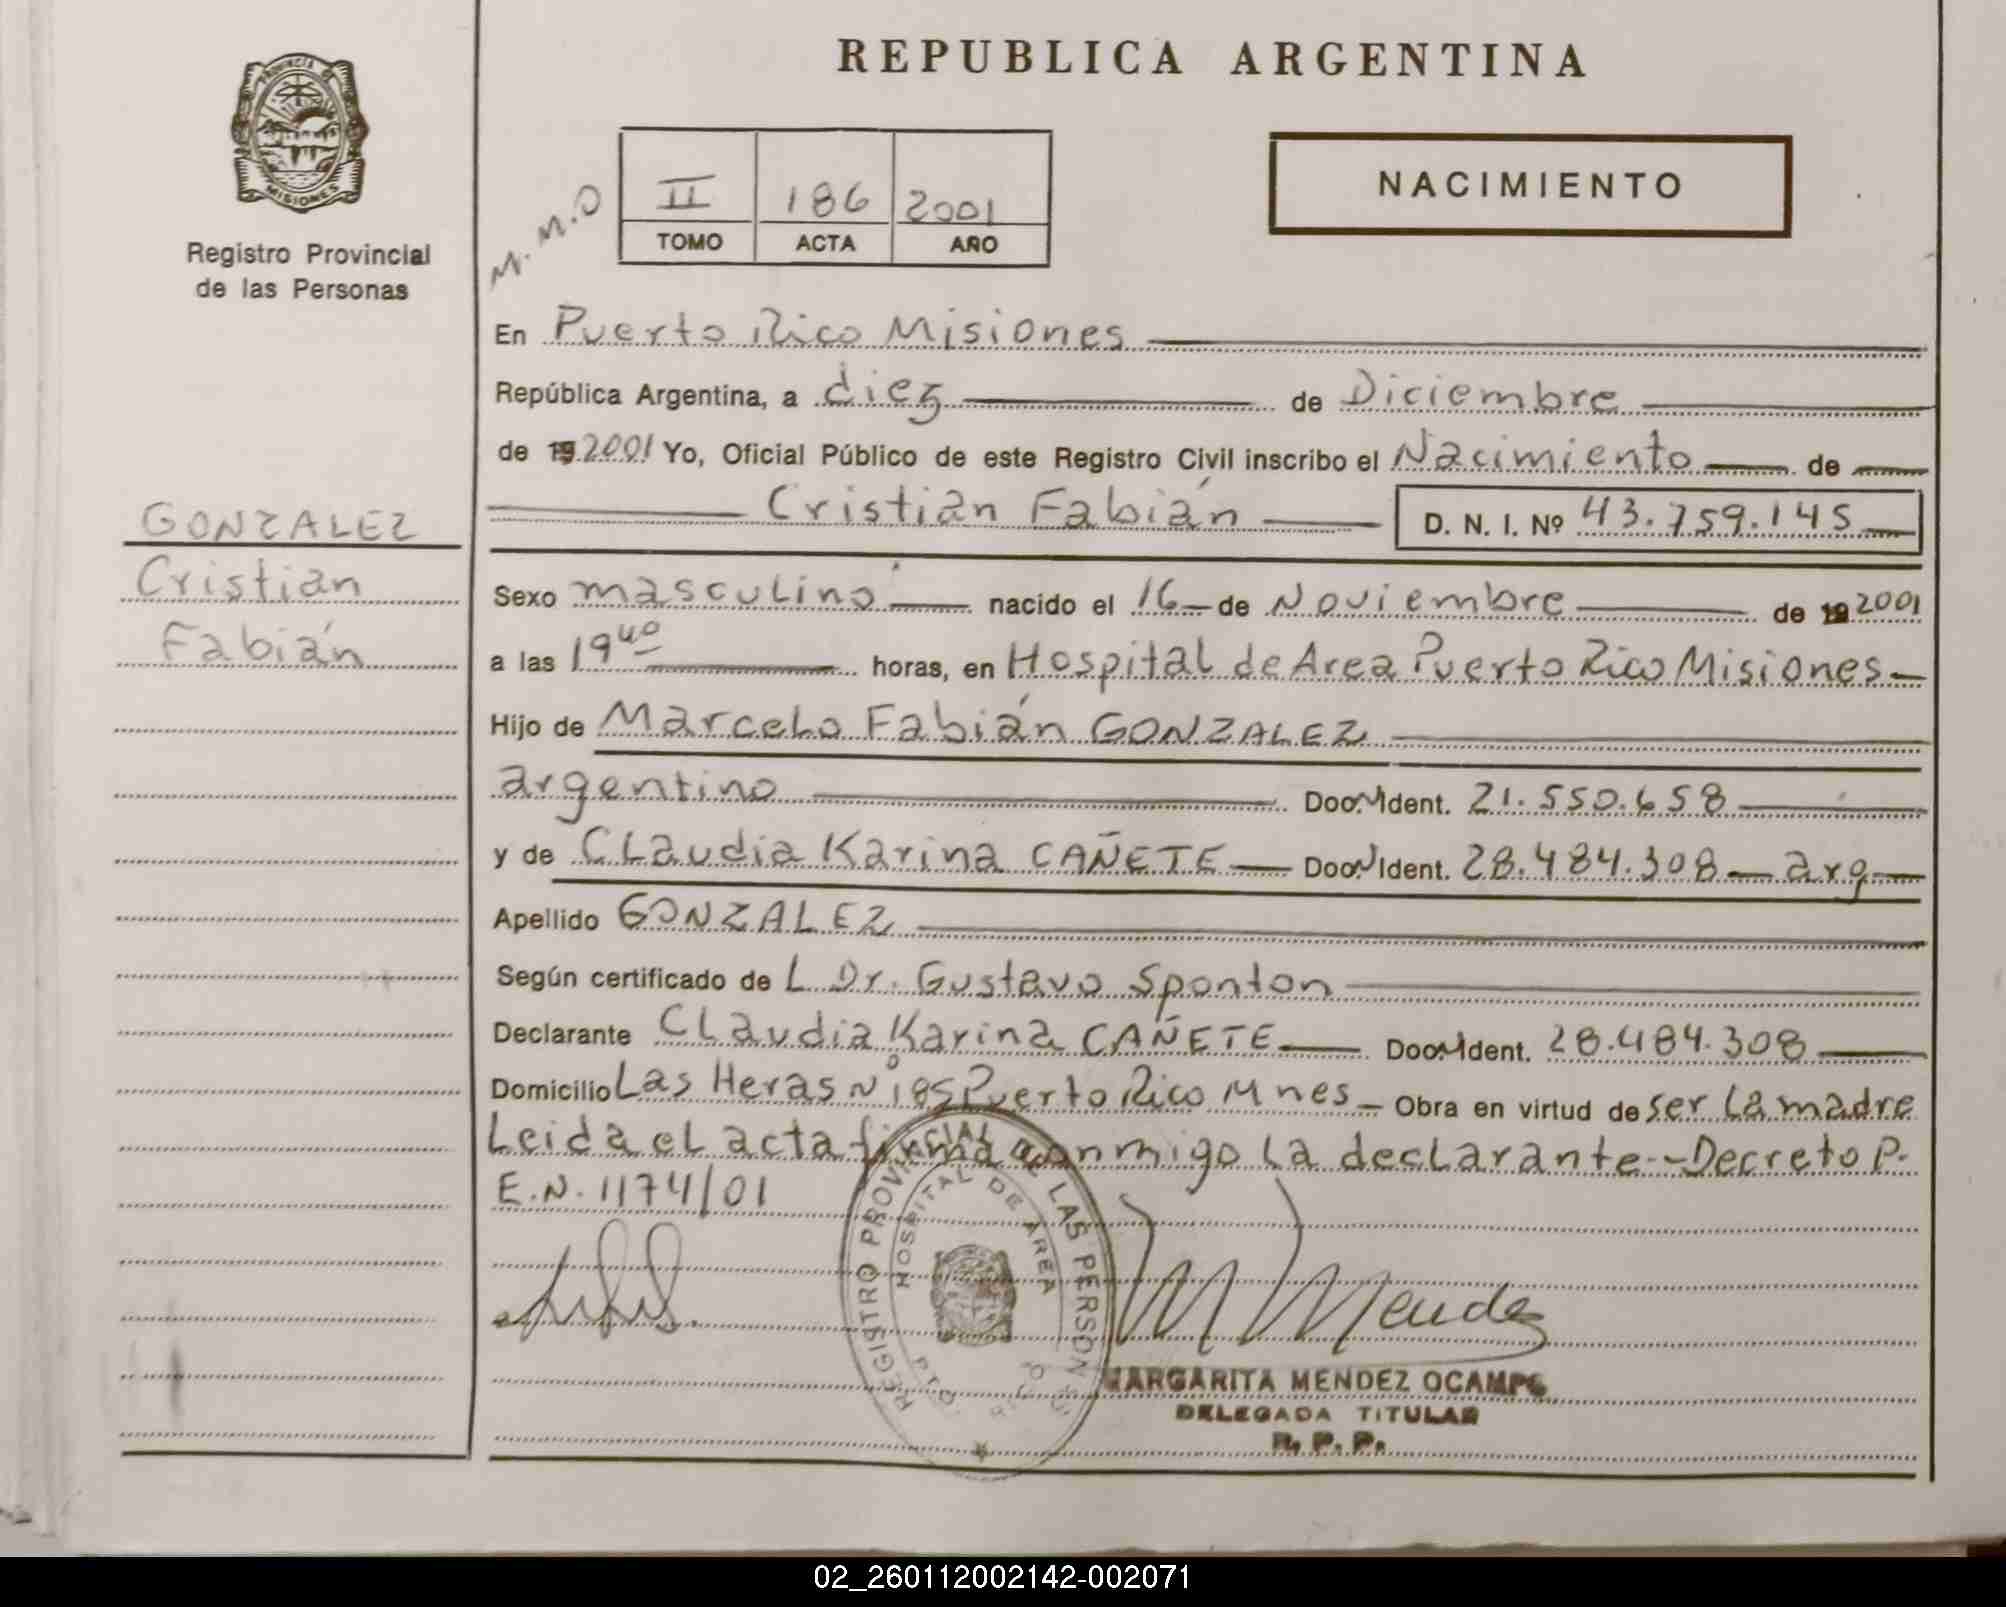 REPUBLICA ARGENTINA
PROVINCIA DE
MISIONES
Registro Provincial
de las Personas
M.M.O
II 186 2001
TOMO ACTA AÑO
NACIMIENTO
En Puerto Rico Misiones
República Argentina, a diez de Diciembre
de 19 2001 Yo, Oficial Público de este Registro Civil inscribo el Nacimiento de
Cristian Fabián D. N. I. Nº 43.759.145
GONZALEZ
Cristian
Fabián
Sexo masculino nacido el 16 de Noviembre de 19 2001
a las 19 40 horas, en Hospital de Area Puerto Rico Misiones
Hijo de Marcelo Fabián GONZALEZ
argentino Doc. Ident. 21.550.658
y de Claudia Karina CAÑETE Doc. Ident. 28.484.308 arg
Apellido GONZALEZ
Según certificado de L Dr. Gustavo Sponton
Declarante Claudia Karina CAÑETE Doc. Ident. 28.484.308
Domicilio Las Heras Nº 185 Puerto Rico Mnes Obra en virtud de ser la madre
Leida el acta firma conmigo la declarante-Decreto P.
E.N. 1174/01
REGISTRO PROVINCIAL DE LAS PERSONAS
HOSPITAL DE AREA
PTO. RICO
M Mendez
MARGARITA MENDEZ OCAMPO
DELEGADA TITULAR
R. P. P.
02_260112002142-002071